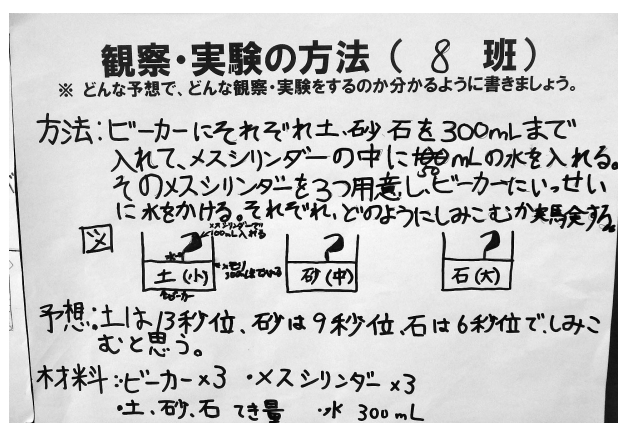 観察・実験の方法(8班)
※ どんな予想で、どんな観察・実験をするのか分かるように書きましょう。
方法:ビーカーにそれぞれ土、砂石を300mLまで
入れて、メスシリンダーの中に50mLの水を入れる。
そのメスシリンダーを3つ用意し、ビーカーにいっせい
に水をかける。それぞれ、どのようにしみこむか実験する。
図
メスシリンダーで
100mL入れる
水
土(小)
砂(中)
石(大)
ビーカー
予想:土は13秒位、砂は9秒位、石は6秒位で、しみこ
むと思う。
材料:・ビーカー×3 ・メスシリンダー×3
・土、砂、石 てき量 ・水 300mL